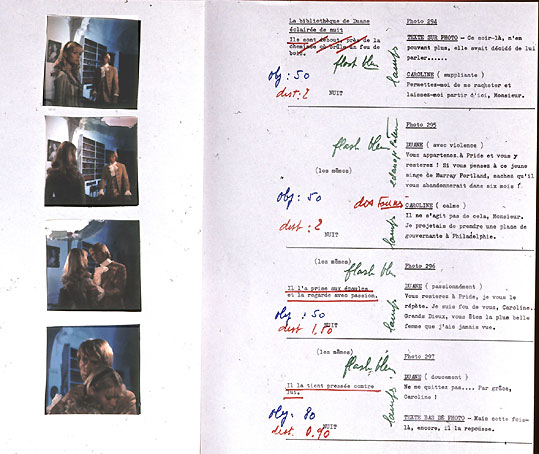 La bibliothèque de Duane
éclairée de nuit
Ils sont debout, près de la
cheminée où brûle un feu de
bois.
flash bleu
lampe
obj : 50
dist : 2
NUIT
Photo 294
TEXTE SUR PHOTO - Ce soir-là, n'en
pouvant plus, elle avait décidé de lui
parler......
CAROLINE ( suppliante )
Permettez-moi de me racheter et
laissez-moi partir d'ici, Monsieur.
flash bleu
(les mêmes)
obj : 50
dist : 2
NUIT
lampe
Photo 295
DUANE ( avec violence )
Vous appartenez à Pride et vous y
resterez ! Si vous pensez à ce jeune
singe de Murray Fortland, sachez qu'il
vous abandonnerait dans six mois !
CAROLINE ( calme )
Il ne s'agit pas de cela, Monsieur.
Je projetais de prendre une place de
gouvernante à Philadelphie.
(les mêmes)
flash bleu
Il l'a prise aux épaules
et la regarde avec passion.
obj : 50
dist 1,10
NUIT
lampe
Photo 296
DUANE ( passionnément )
Vous resterez à Pride, je vous le
répète. Je suis fou de vous, Caroline..
Grands Dieux, vous êtes la plus belle
femme que j'aie jamais vue.
(les mêmes)
flash bleu
Il la tient pressée contre
lui.
obj : 80
dist. 0.90
NUIT
lampe
Photo 297
DUANE ( doucement )
Ne me quittez pas.... Par grâce,
Caroline !
TEXTE BAS DE PHOTO - Mais cette fois-
là, encore, il la repousse.